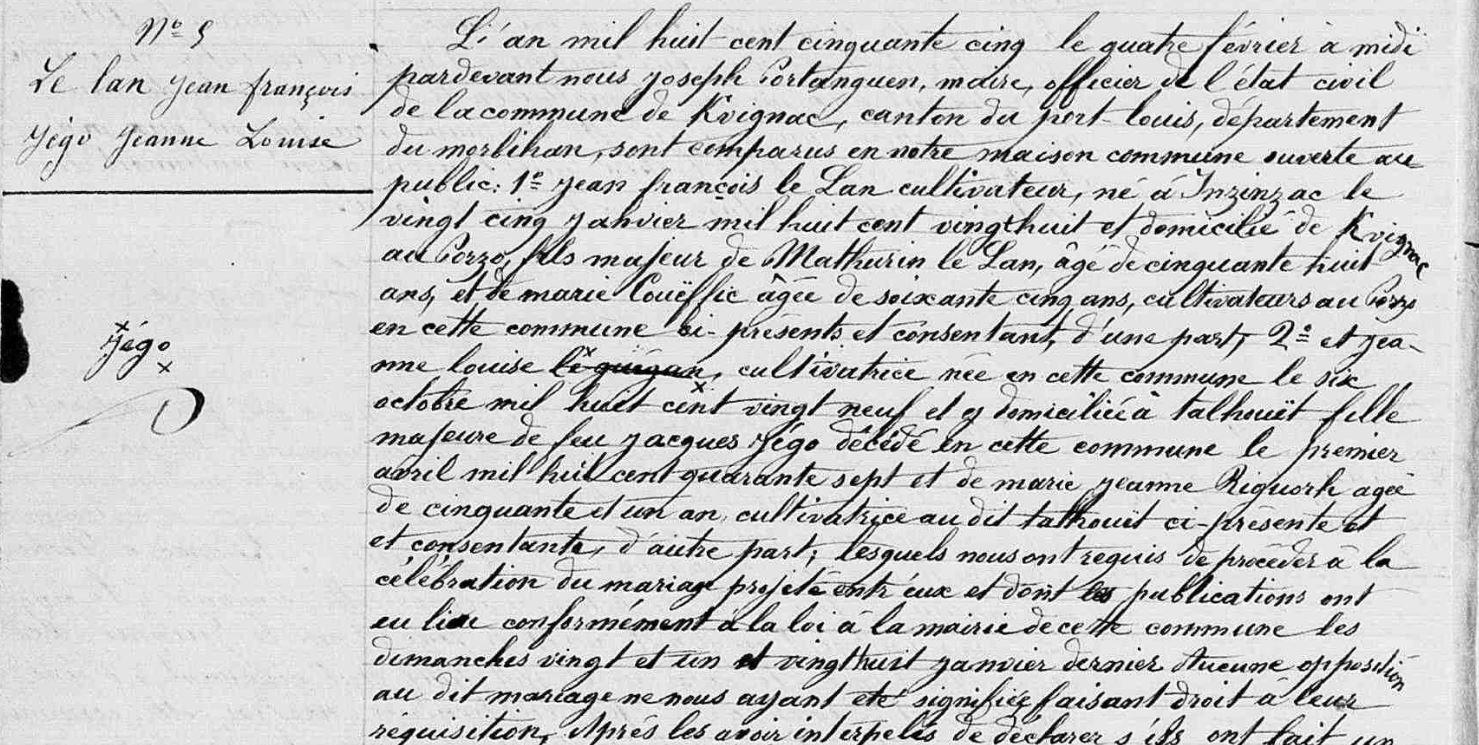 N° 5
Le lan jean françois
Jégo Jeanne Louise
L'an mil huit cent cinquante cinq le quatre février à midi
pardevant nous joseph Portanguen, maire, officier de l'état civil
de la commune de Kvignac, canton du port-louis, département
du morbihan, sont comparus en notre maison commune ouverte au
public: 1° jean françois le Lan cultivateur, né à Inzinzac le
vingt cinq janvier mil huit cent vingthuit et domicilié de Kvignac
au Porzo, fils majeur de Mathurin le Lan, âgé de cinquante huit
ans, et de marie Couëffic âgée de soixante cinq ans, cultivateurs au Porzo
en cette commune ci-présents et consentant, d'une part, 2° et jea-
nne louise le guégan, cultivatrice née en cette commune le six
octobre mil huit cent vingt neuf et y domiciliée à talhouët fille
majeure de feu jacques Jégo décédé en cette commune le premier
avril mil huit cent quarante sept et de marie jeanne Riguorh agée
de cinquante et un an, cultivatrice au dit talhouët ci-présente et
et consentante, d'autre part; lesquels nous ont requis de procéder à la
célébration du mariage projété entr'eux et dont les publications ont
eu lieu conformément à la loi à la mairie de cette commune les
dimanches vingt et un et vingthuit janvier dernier. Aucune opposition
au dit mariage ne nous ayant eté signifiée faisant droit à leur
réquisition, Après les avoir interpelés de déclarer s'ils ont fait un
x
Jégo
x